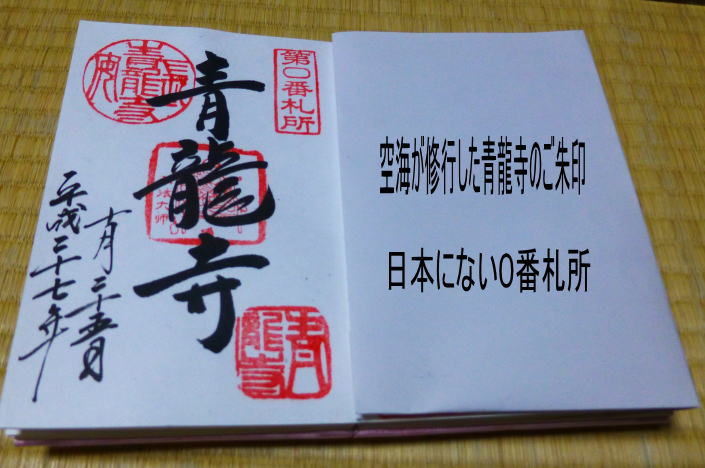 空海が修行した青龍寺のご朱印
日本にない0番札所
第〇番札所
青龍寺
長安
青龍寺
平成二十七年
十月二十五日
青龍寺